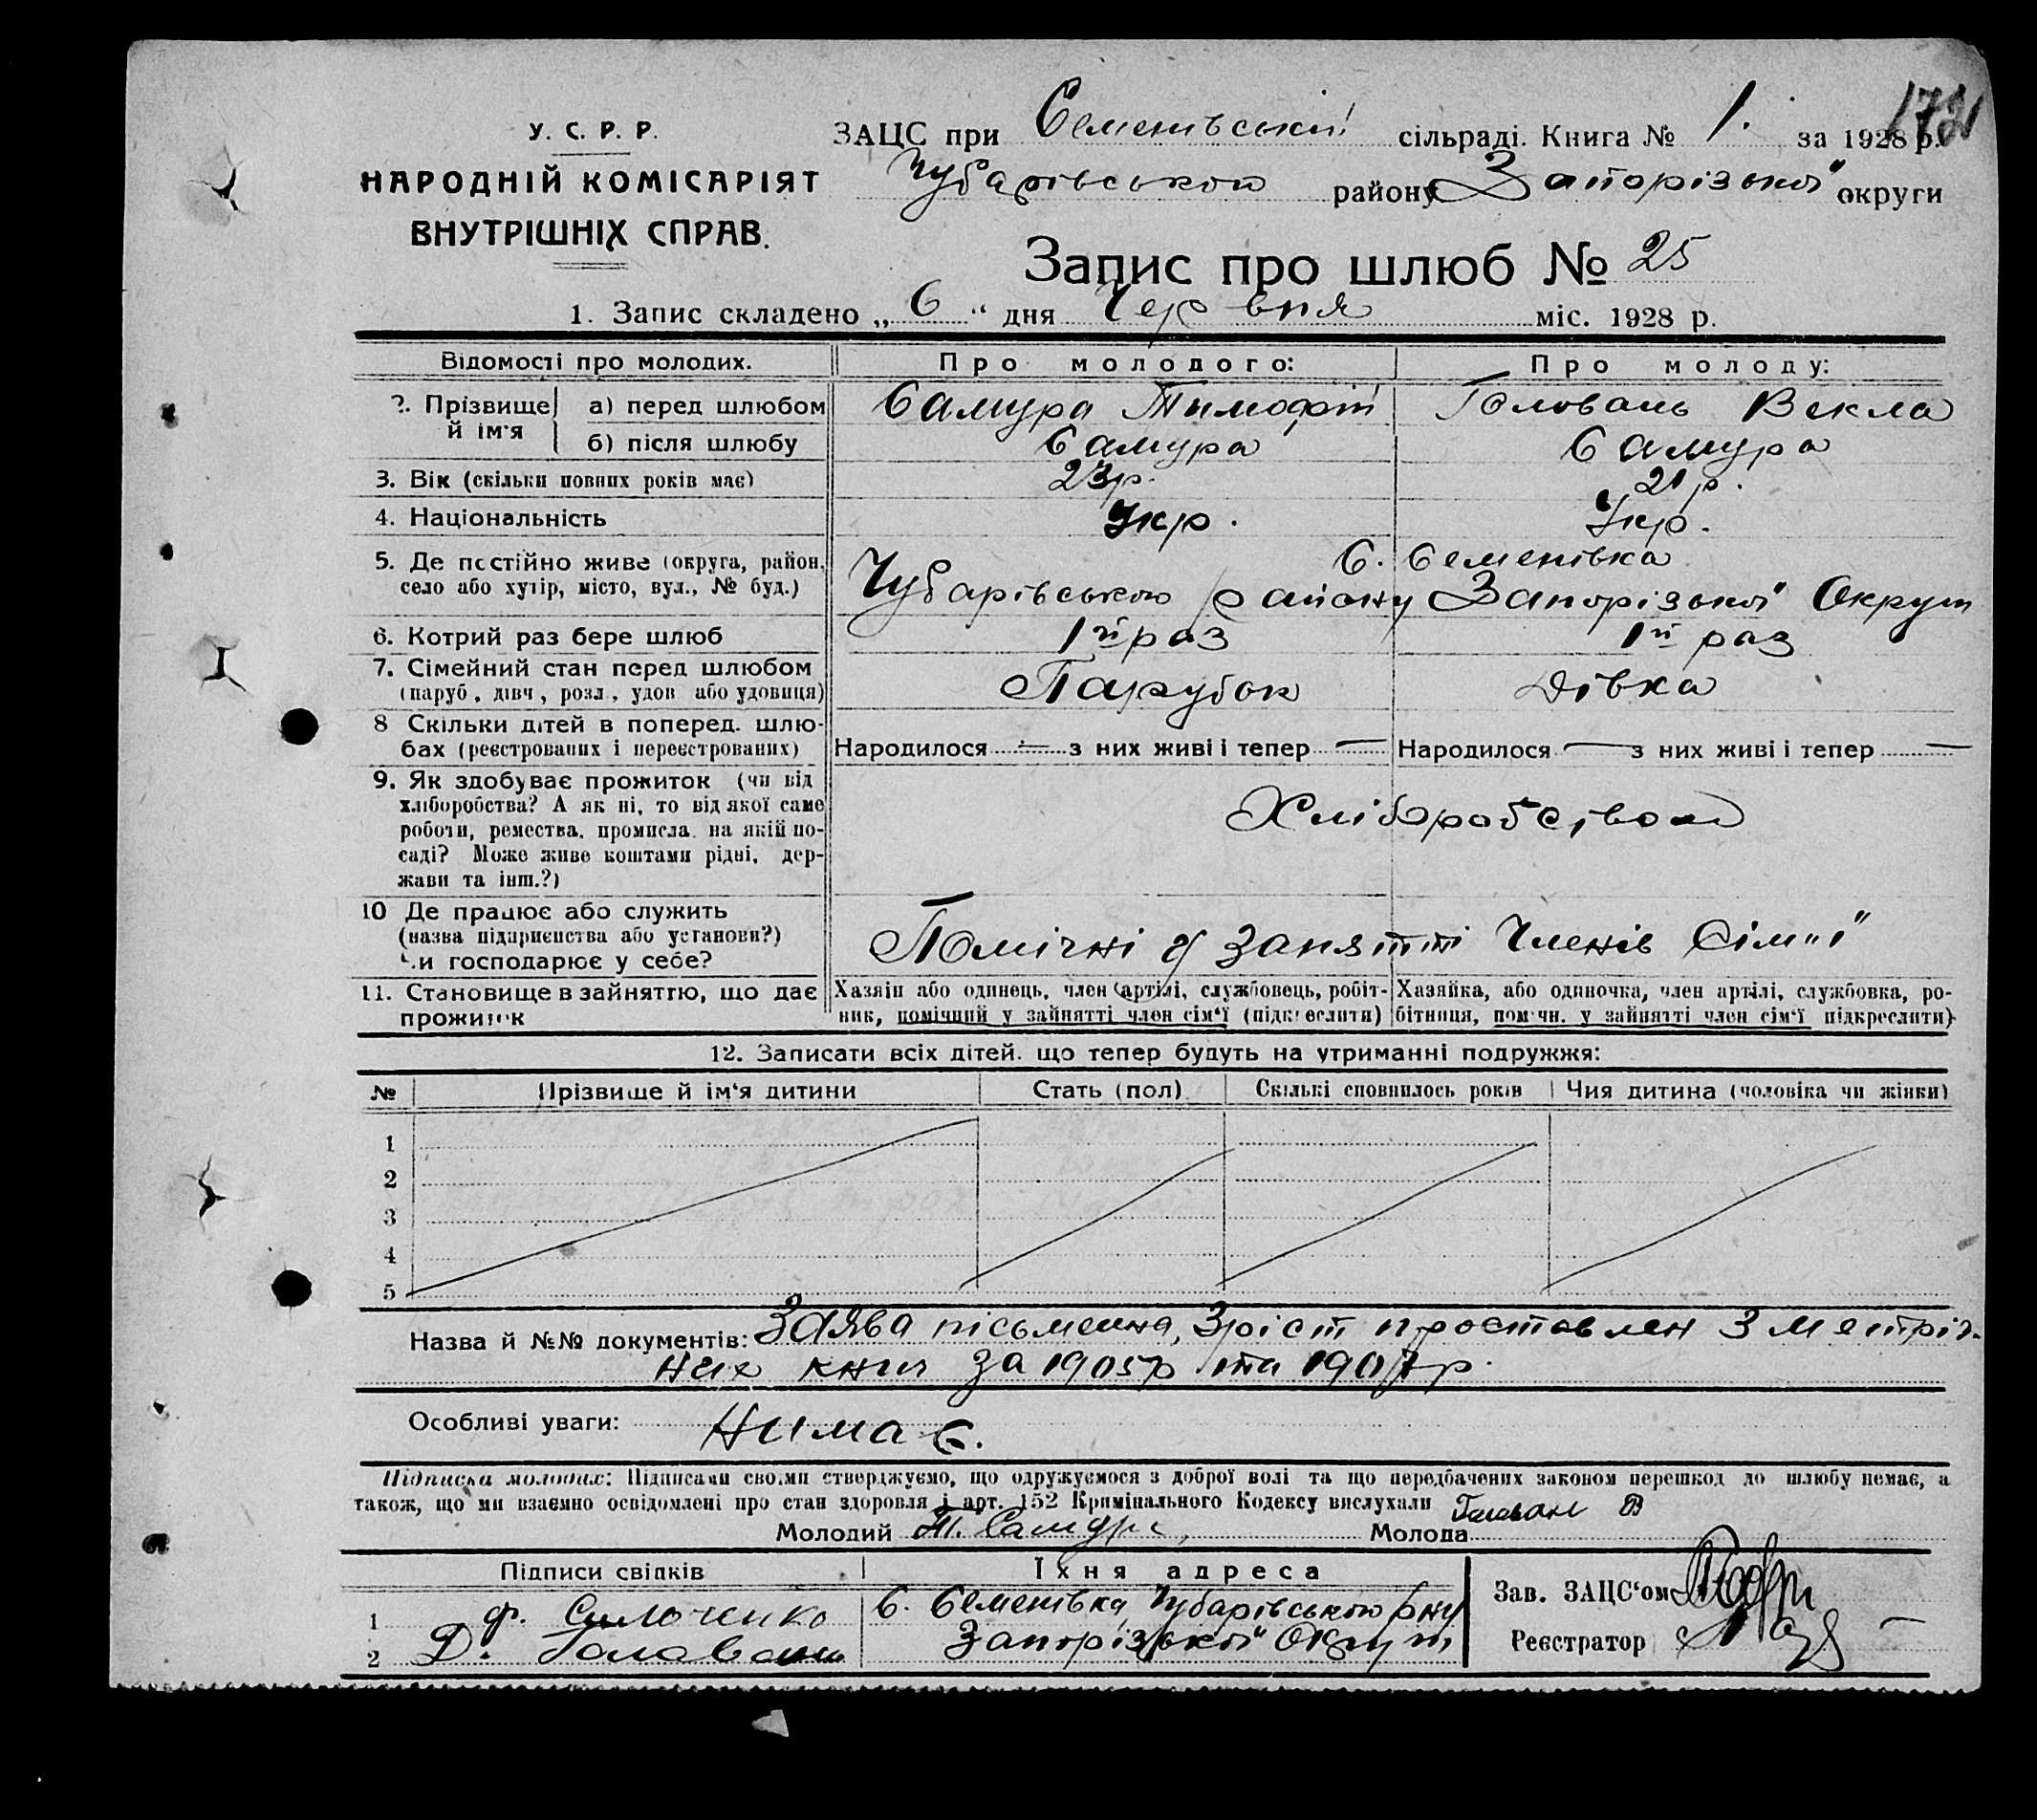 172
У. С. Р. Р.
НАРОДНІЙ КОМІСАРІЯТ
ВНУТРІШНІХ СПРАВ.
ЗАЦС при Семенівській сільраді. Книга № 1. за 1928 р.
Чубарівського району Запорізької округи
Запис про шлюб № 25
1. Запис складено „ 6 “ дня Червня міс. 1928 р.
Відомості про молодих. Про молодого: Про молоду:
2. Прізвище й ім'я а) перед шлюбом Самура Тимофій Головань Векла
б) після шлюбу Самура Самура
3. Вік (скільки повних років має) 23р. 21 р.
4. Національність Укр. Укр.
5. Де постійно живе (округа, район, С. Семенівка
село або хутір, місто, вул., № буд.) Чубарівського району Запорізької Округи
6. Котрий раз бере шлюб 1й раз 1й раз
7. Сімейний стан перед шлюбом Парубок Дівка
(паруб., дівч., розл., удов або удовиця)
8 Скільки дітей в поперед. шлю-
бах (реєстрованих і нереєстрованих) Народилося — з них живі і тепер — Народилося — з них живі і тепер —
9. Як здобуває прожиток (чи від
хліборобства? А як ні, то від якої саме
роботи, ремества, промисла, на якій по-
саді? Може живе коштами рідні, дер-
жави та інш.?)
Хліборобством
10 Де працює або служить
(назва підприємства або установи?)
Чи господарює у себе?
Помічні у занятті Членів Сім'ї
11. Становище в зайняттю, що дає
прожиток
Хазяїн або одинець, член артілі, службовець, робіт-
ник, помічний у зайнятті член сім'ї (підкреслити)
Хазяйка, або одиночка, член артілі, службовка, ро-
бітниця, помічн. у зайнятті член сім'ї підкреслити)
12. Записати всіх дітей, що тепер будуть на утриманні подружжя:
№ Прізвище й ім'я дитини Стать (пол) Скількі сповнилось років Чия дитина (чоловіка чи жінки)
1
2
3
4
5
Назва й №№ документів: Заява пісьменна, Зріст проставлен З метріч-
них книг за 1905р та 1907р.
Особливі уваги: Нимає.
Підписка молодих: Підписами своїми стверджуємо, що одружуємося з доброї волі та що передбачених законом перешкод до шлюбу немає, а
також, що ми взаємно освідомлені про стан здоровля і арт. 152 Кримінального Кодексу вислухали
Молодий Т. Самура Молода Головань В
Підписи свідків Їхня адреса
1 Ф.
2 Д. Головань
С. Семенівка Чубарівського р-ну
Запорізької Округи
Зав. ЗАЦС'ом
Реєстратор